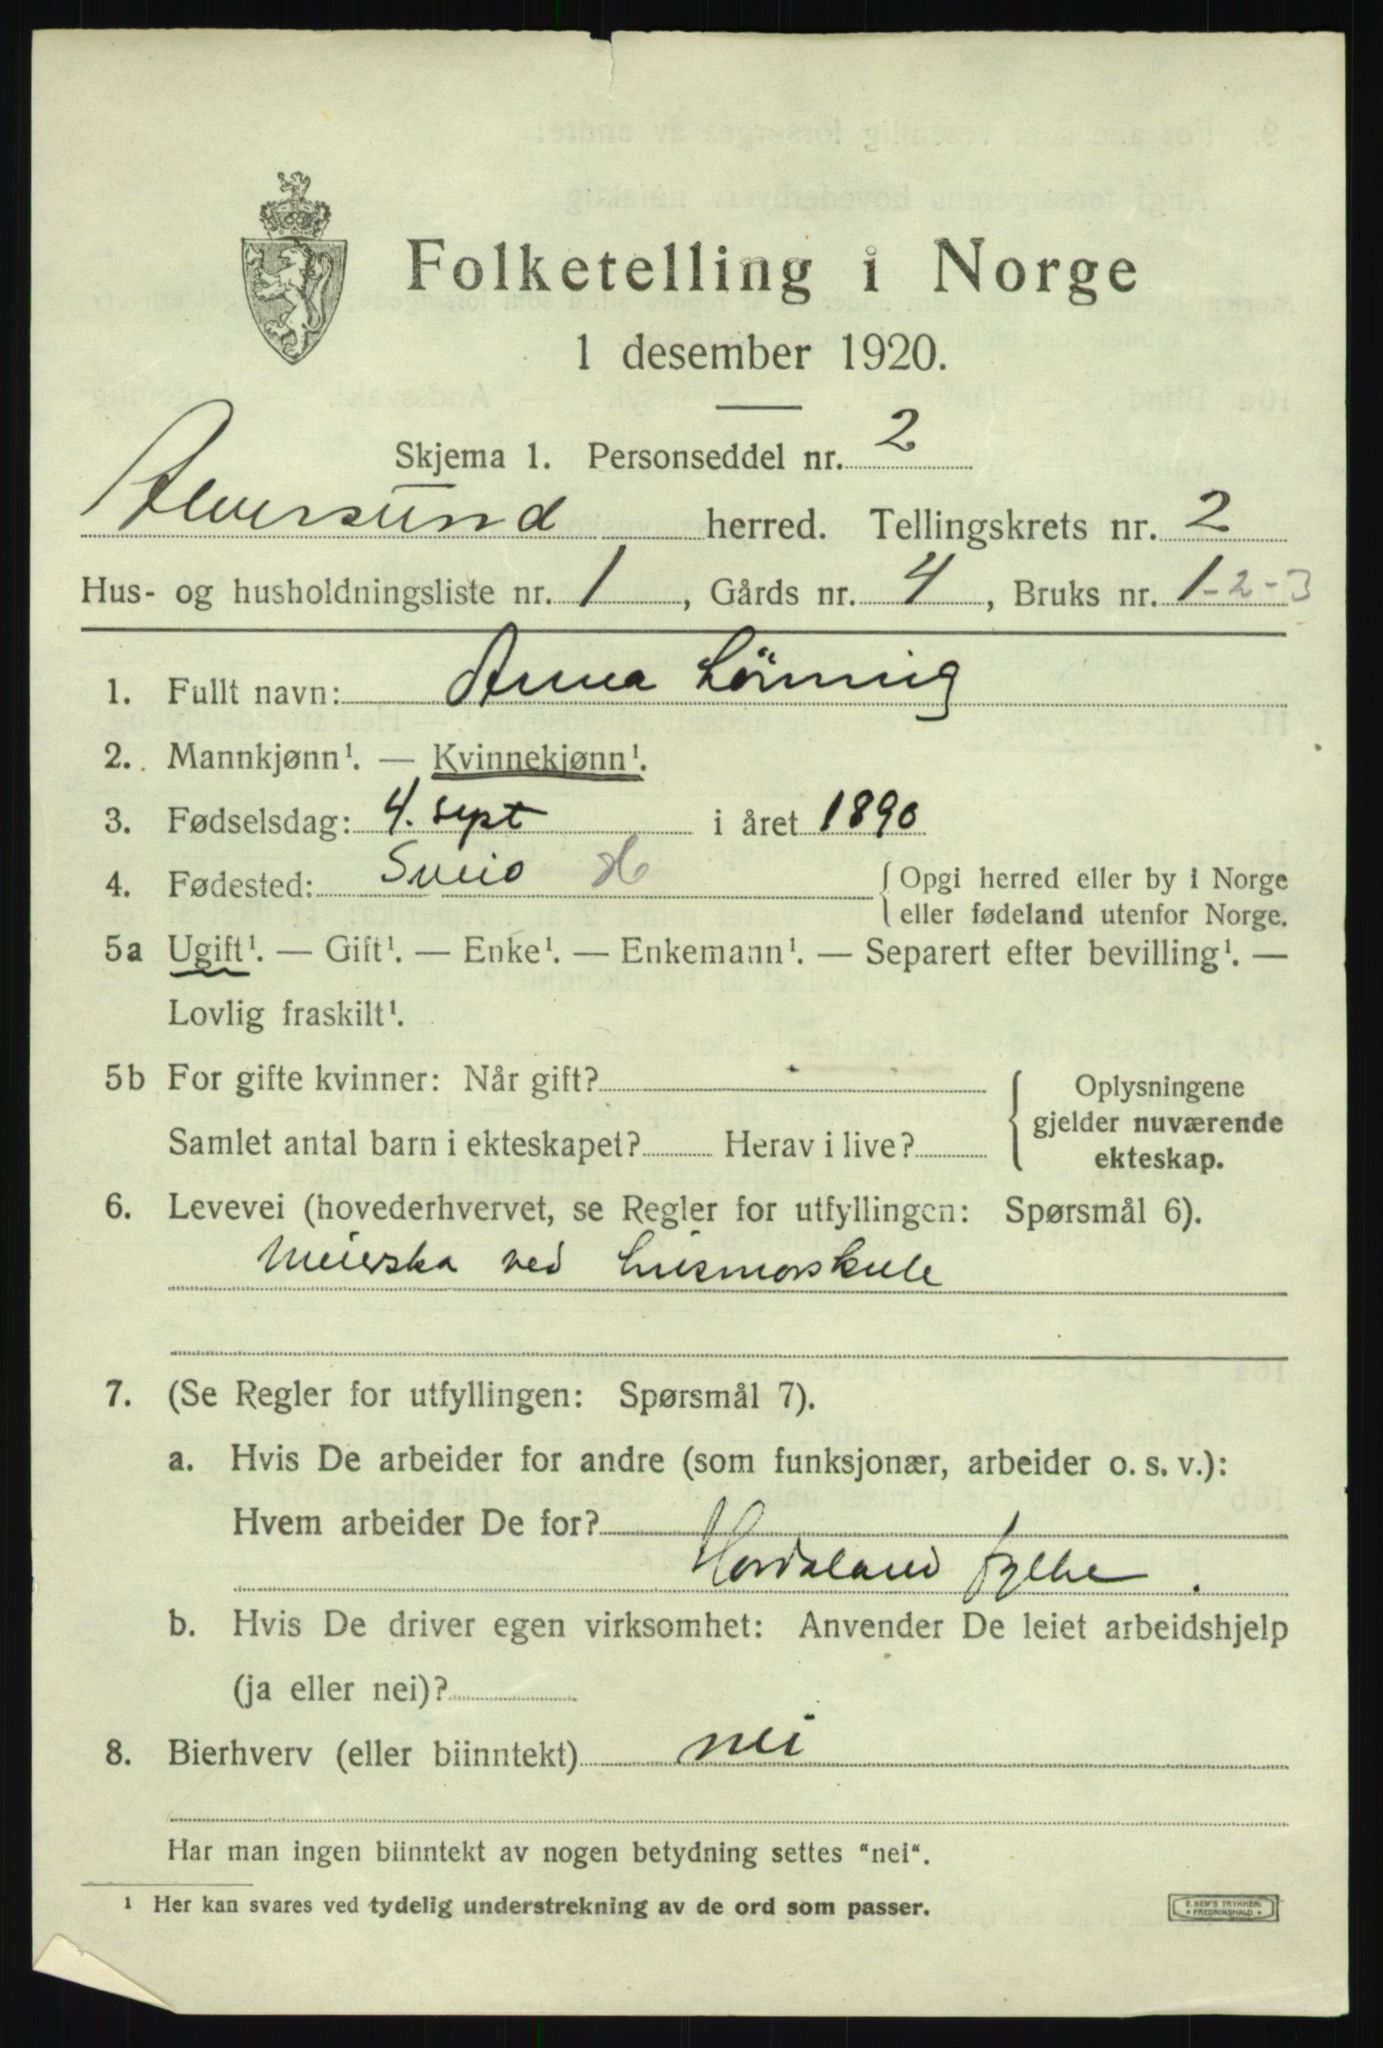 Folketelling i Norge
1 desember 1920.
Skjema 1. Personseddel nr. 2
Alversund herred. Tellingskrets nr. 2
Hus- og husholdningsliste nr. 1, Gårds nr. 4, Bruks nr. 1-2-3
1. Fullt navn: Anna Lönning
2. Mannkjønn¹. — Kvinnekjønn¹.
3. Fødselsdag: 4. sept i året 1890
4. Fødested: Sveio H { Opgi herred eller by i Norge
eller fødeland utenfor Norge.
5a Ugift¹. — Gift¹. — Enke¹. — Enkemann¹. — Separert efter bevilling¹. —
Lovlig fraskilt¹.
5b For gifte kvinner: Når gift? { Oplysningene
gjelder nuværende
Samlet antal barn i ekteskapet? Herav i live?
ekteskap.
6. Levevei (hovederhvervet, se Regler for utfyllingen: Spørsmål 6).
Meierska ved husmorskule
7. (Se Regler for utfyllingen: Spørsmål 7).
a. Hvis De arbeider for andre (som funksjonær, arbeider o. s. v.):
Hvem arbeider De for?
Hordaland fylke.
b. Hvis De driver egen virksomhet: Anvender De leiet arbeidshjelp
(ja eller nei)?
8. Bierhverv (eller biinntekt) nei
Har man ingen biinntekt av nogen betydning settes "nei".
¹ Her kan svares ved tydelig understrekning av de ord som passer.
E. SEM'S TRYKKERI
* FREDRIKSHALD *